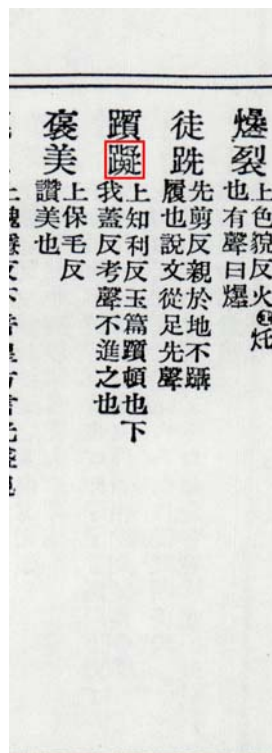 爆裂
上色貌反火
也有聲曰爆
徒跣
先剪反親於地不躡
履也說文從足先聲
躓
上知利反玉篇躓頓也下
我蓋反考聲不進之也
褒美
上保毛反
讚美也